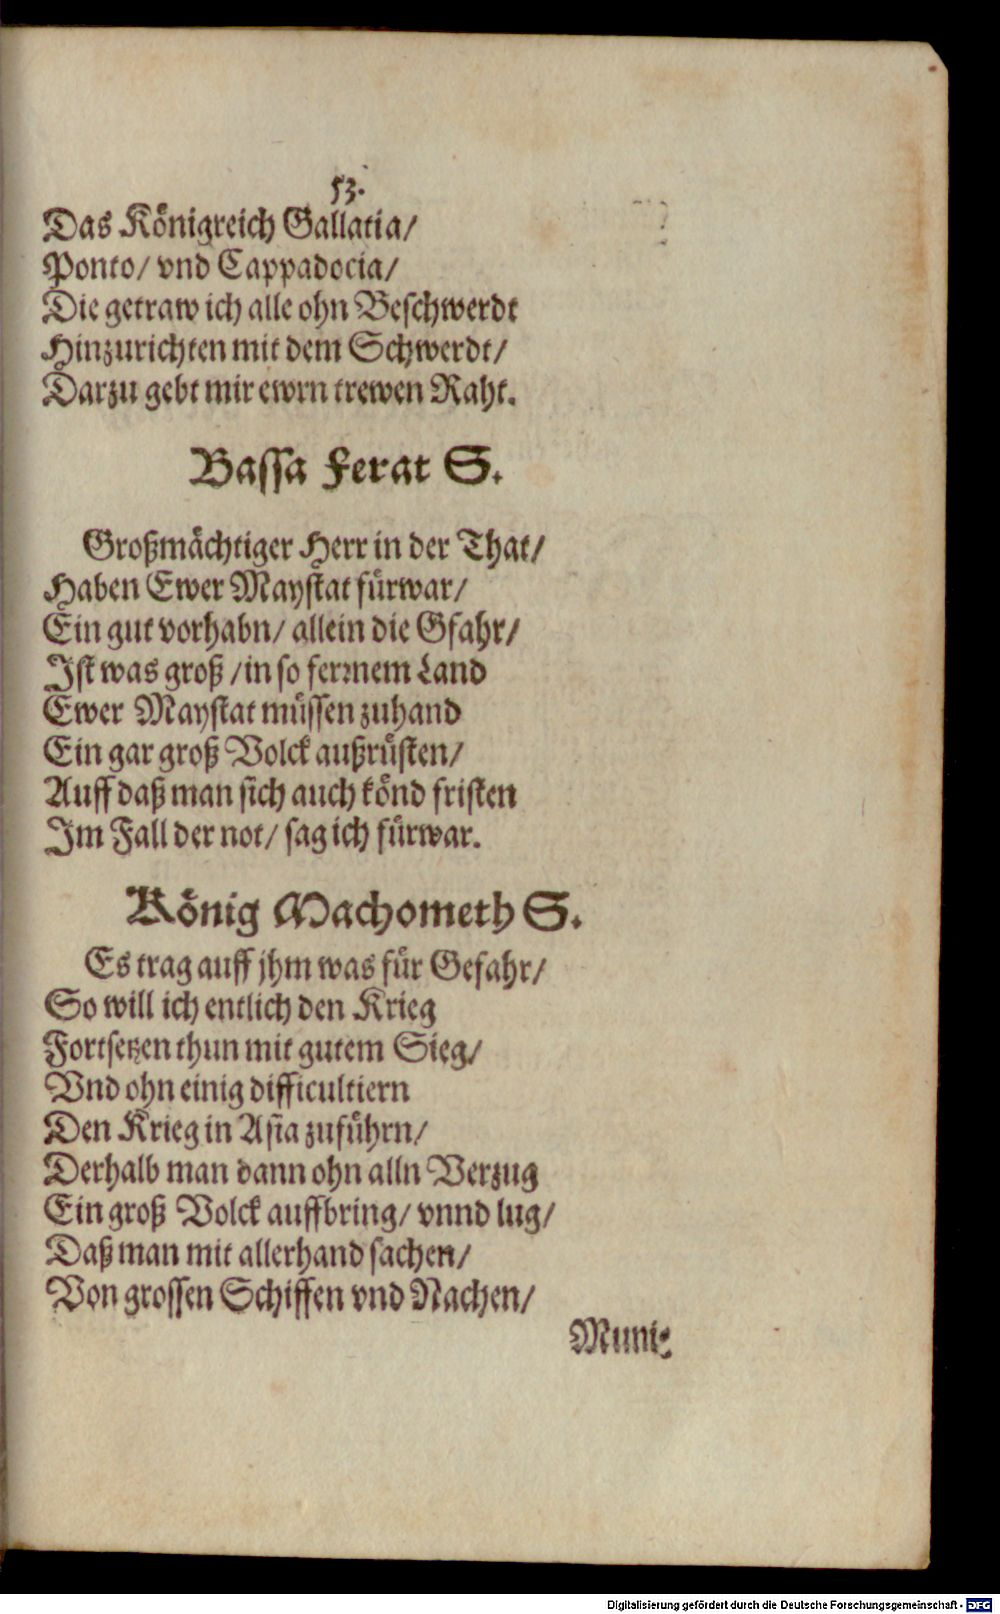 53.
Das Königreich Gallatia/
Ponto/ vnd Cappadocia/
Die getraw ich alle ohn Beschwerdt
Hinzurichten mit dem Schwerdt/
Darzu gebt mir ewrn trewen Raht.
Bassa Ferat S.
Großmächtiger Herr in der That/
Haben Ewer Maystat fürwar/
Ein gut vorhabn/ allein die Gfahr/
Ist was groß /in so fernem Land
Ewer Maystat müssen zuhand
Ein gar groß Volck außrüsten/
Auff daß man sich auch könd fristen
Im Fall der not/ sag ich fürwar.
König Machometh S.
Es trag auff jhm was für Gefahr/
So will ich entlich den Krieg
Fortsetzen thun mit gutem Sieg/
Vnd ohn einig difficultiern
Den Krieg in Asia zuführn/
Derhalb man dann ohn alln Verzug
Ein groß Volck auffbring/ vnnd lug/
Daß man mit allerhand sachen/
Von grossen Schiffen vnd Nachen/
Muni-
Digitalisierung gefördert durch die Deutsche Forschungsgemeinschaft - DFG